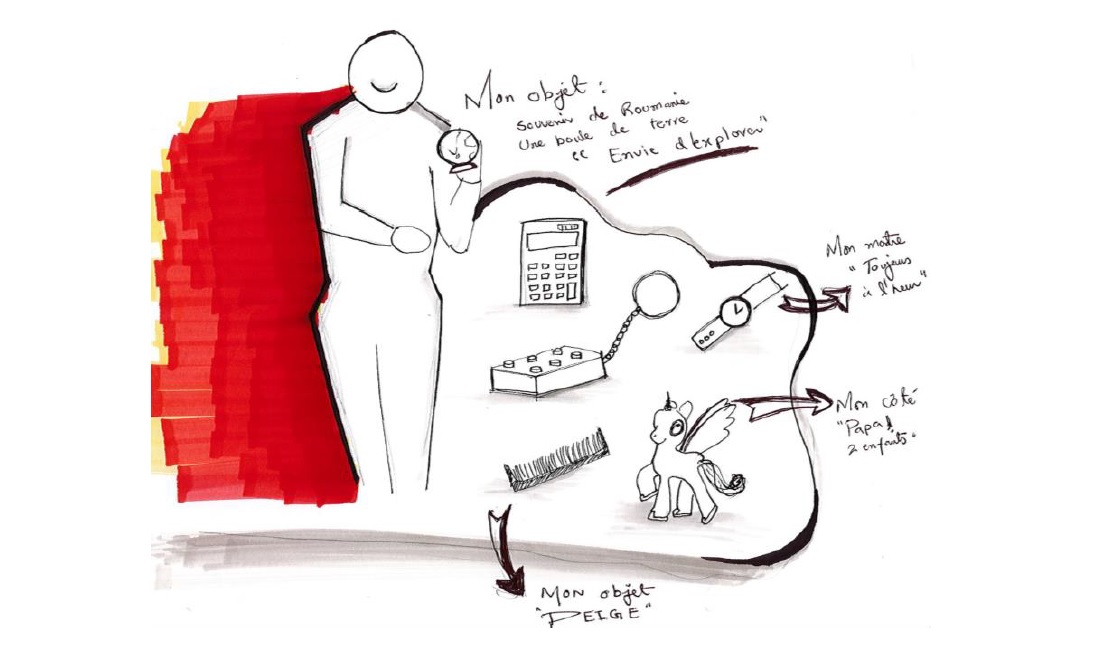 Mon objet :
souvenir de Roumanie
Une boule de terre
" Envie d'explorer"
Mon maître
" Toujours
à l'heur"
Mon côté
"Papa!
2 enfants"
Mon objet
"PEIGE"